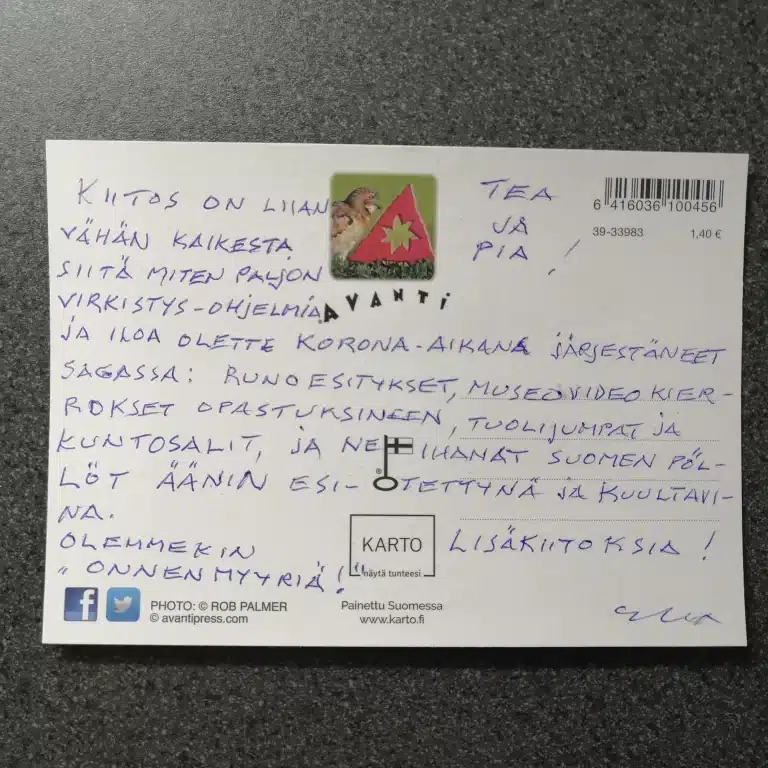 TEA
JA
PIA !
6 416036 100456
39-33983 1,40 €
KIITOS ON LIIAN
VÄHÄN KAIKESTA
SIITÄ MITEN PALJON
VIRKISTYS-OHJELMIA
AVANTI
JA ILOA OLETTE KORONA-AIKANA JÄRJESTÄNEET
SAGASSA: RUNOESITYKSET, MUSEOVIDEO KIER-
ROKSET OPASTUKSINEEN, TUOLIJUMPAT JA
KUNTOSALIT, JA NE IHANAT SUOMEN PÖL-
LÖT ÄÄNIN ESI- TETTYNÄ JA KUULTAVI-
NA.
OLEMMEKIN
"ONNENMYYRIÄ!"
LISÄKIITOKSIA !
®
KARTO
näytä tunteesi
f
PHOTO: © ROB PALMER
© avantipress.com
Painettu Suomessa
www.karto.fi